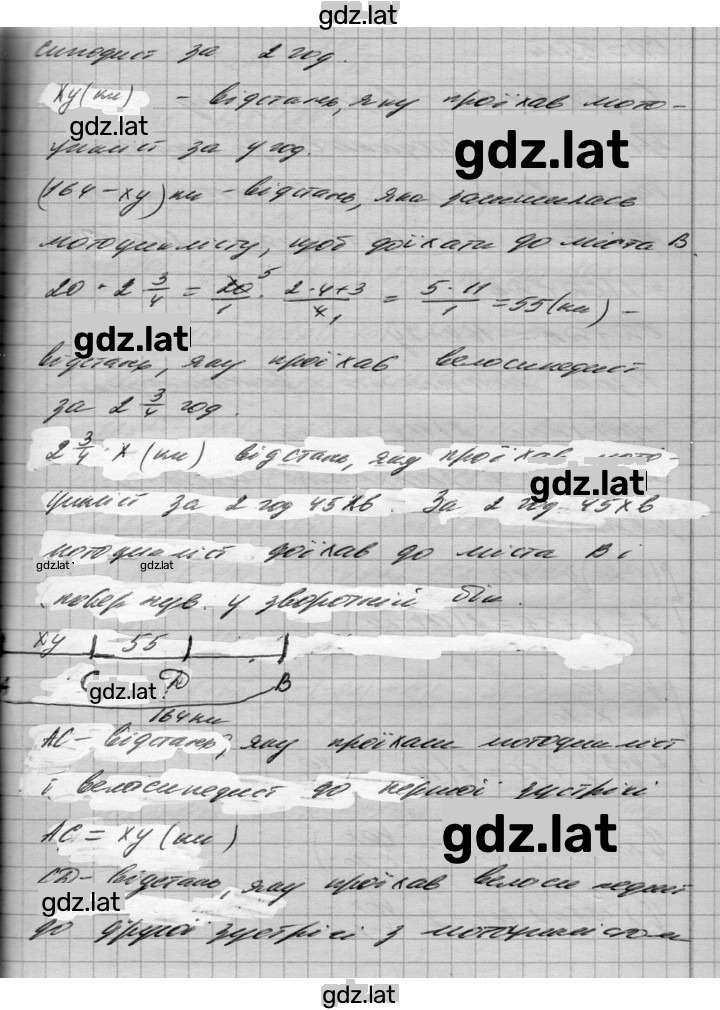 gdz.lat
сипедист за 2 год.
xy(км) – відстань, яку проїхав мото-
gdz.lat
gdz.lat
цикліст за y год.
(164-xy) км – відстань, яка залишилась
мотоциклісту, щоб доїхати до міста B.
20 · 2 3/4 = 20/1 · (2·4+3)/4 = 5·11/1 = 55(км) –
gdz.lat
відстань, яку проїхав велосипедист
за 2 3/4 год.
2 3/4 · x (км) відстань, яку проїхав мото-
gdz.lat
цикліст за 2 год 45 хв. За 2 год 45 хв
мотоцикліст доїхав до міста B і
gdz.lat
gdz.lat
повернув у зворотній бік.
xy 55
A C D B
gdz.lat
164 км
AC – відстань, яку проїхали мотоцикліст
і велосипедист до першої зустрічі
AC = xy (км)
gdz.lat
CD – відстань, яку проїхав велосипедист
gdz.lat
до другої зустрічі з мотоциклістом
gdz.lat